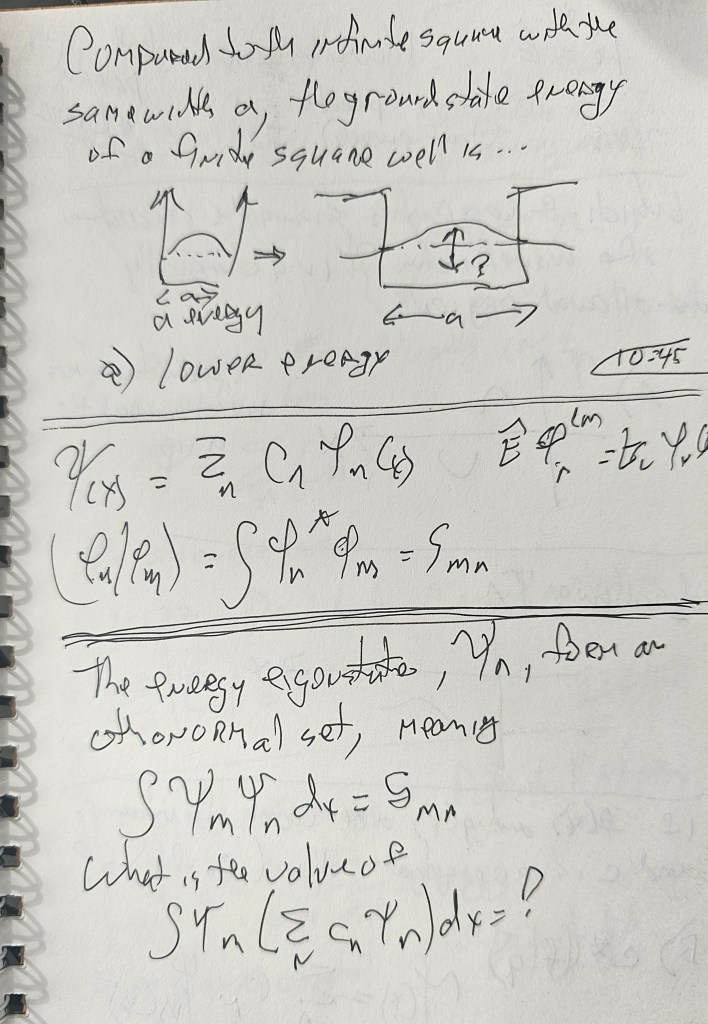 Compared to th infinite square with the
same width a, the ground state energy
of a finite square well is ...
?
a
a energy
a
a) lower energy
10-45
Ψ(x) = Σ_n C_n φ_n(x)
(φ_n|φ_m) = ∫ φ_n^* φ_m = δ_mn
The energy eigenstates, Ψ_n, form an
othonormal set, meaning
∫ Ψ_m Ψ_n dx = δ_mn
What is the value of
∫ Ψ_m (Σ_n c_n Ψ_n) dx = ?